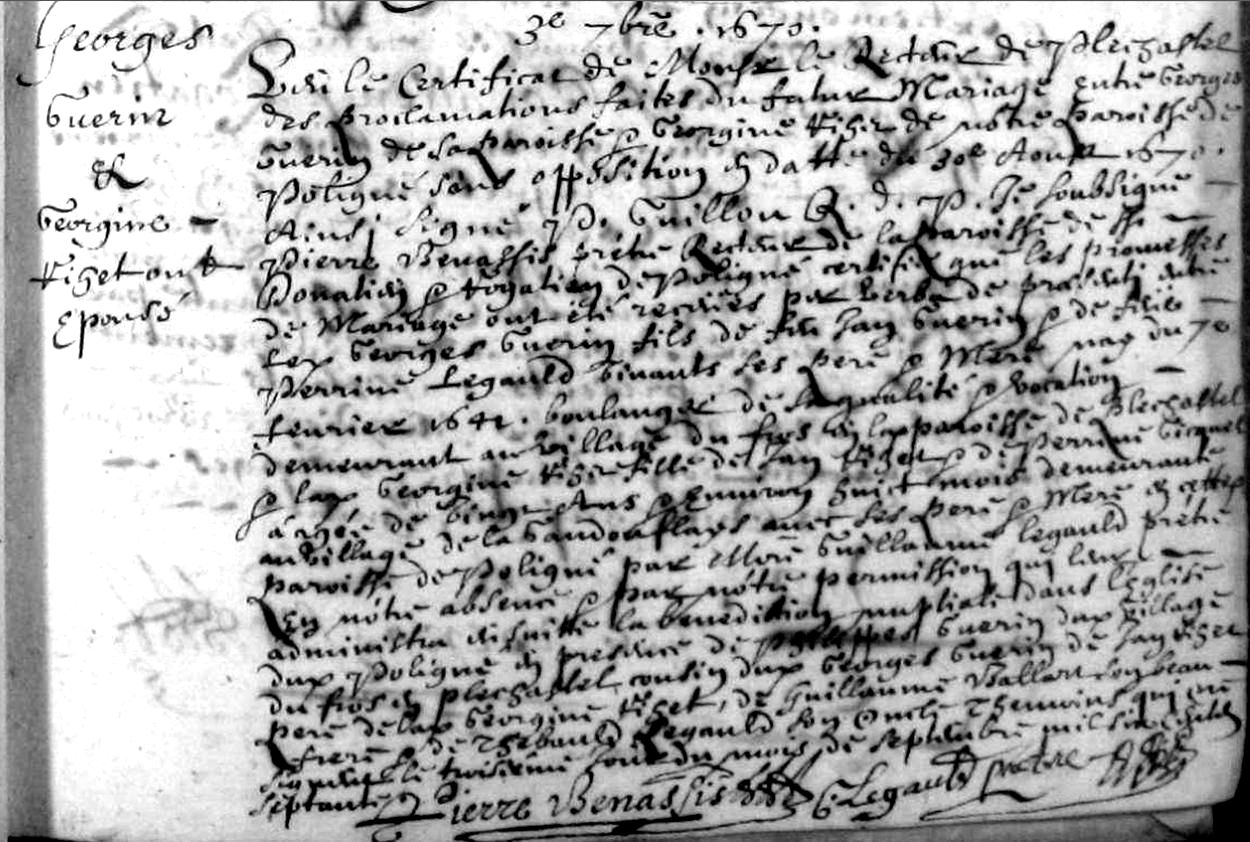 Georges
Guerin
&
Georgine
Riget ont
Epousé
3e 7bre . 1670 .
Veu le Certificat de Monsr le Recteur de Plechastel
des proclamations faites du futur Mariage entre Georges
Guerin de sa paroisse & Georgine Riget de notre paroisse de
Poligné sans opposition en datte du 30e Aoust 1670 .
Ainsi signé P. Guillou R. d. P. Je soubsigné
Pierre Benassis prêtre Recteur de la paroisse de
Donatien & Rogatien de Poligné certifie que les promesses
de Mariage ont été receües par verbe de présenti entre
Georges Guerin fils de feu Jan Guerin & de
Perrine Legauld vivants ses pere & Mere nay du 7e
fevrier 1641 . boulanger de sa qualité & vocation
demeurant au village du fros en la paroisse de Plechastel
& Georgine Riget fille de Jan Riget & de Perrine
aagée de vingt Ans & Environ huict mois demeurante
au village de la avec ses pere & Mere en cette
paroisse de Poligné par Guillaume legauld prêtre
En nôtre absence & par nôtre permission qui leur
administra ensuitte la benediction nuptiale dans l'Eglise
Poligné en presence de Guerin village
du fros en Plechastel cousin Georges Guerin de Jan Riget
pere de Georgine Riget, de Guillaume son beau
frere de Thebauld Legauld son Oncle Themoins qui ne
signent le troisieme jour du mois de septembre mil six
septante Pierre Benassis G Legauld prebtre